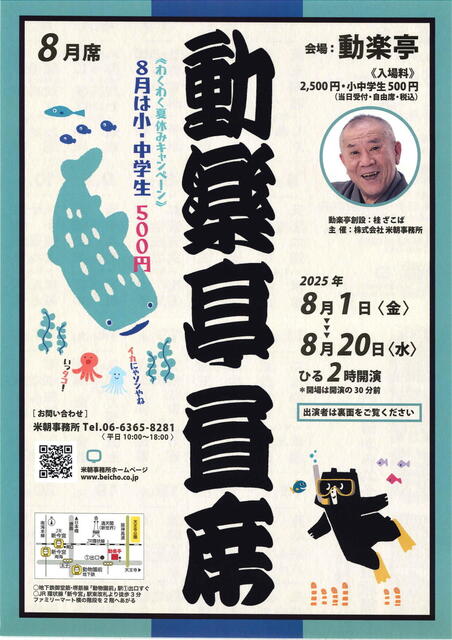 8月席
会場：動楽亭
《入場料》
2,500円・小中学生500円
（当日受付・自由席・税込）
《わくわく夏休みキャンペーン》
8月は小・中学生500円
動楽亭昼席
動楽亭創設：桂 ざこば
主 催：株式会社 米朝事務所
2025年
8月1日〈金〉
8月20日〈水〉
ひる2時開演
＊開場は開演の30分前
出演者は裏面をご覧ください
イカにゃソンやね
いっタコ！
［お問い合わせ］
米朝事務所 Tel.06-6365-8281
〈 平日 10:00〜18:00 〉
米朝事務所ホームページ
www.beicho.co.jp
新今宮
動楽亭
動物園前
地下鉄
天王寺
○地下鉄御堂筋・堺筋線「動物園前」駅①出口すぐ
○JR環状線「新今宮」駅東改札より徒歩3分
ファミリーマート横の階段を2階へあがる